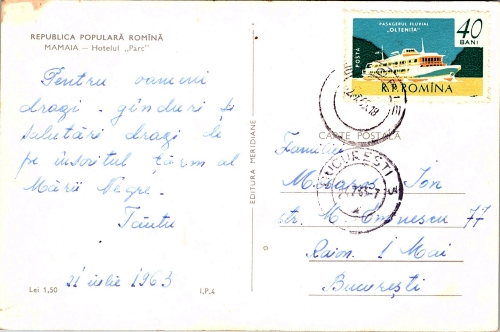 REPUBLICA POPULARĂ ROMÎNĂ
MAMAIA — Hotelul „Parc"
Pentru oameni
dragi, gînduri și
salutări dragi de
pe însoritul țărm al
Mării Negre.
21 iulie 1963
Lei 1,50
I.P.4
EDITURA MERIDIANE
PASAGERUL FLUVIAL
„OLTENIȚA"
40
BANI
POSTA
R.P.ROMÎNA
CARTE POSTALĂ
BUCUREȘTI
Familia
Ion
str. M. Eminescu 77
Raion. 1 Mai
București